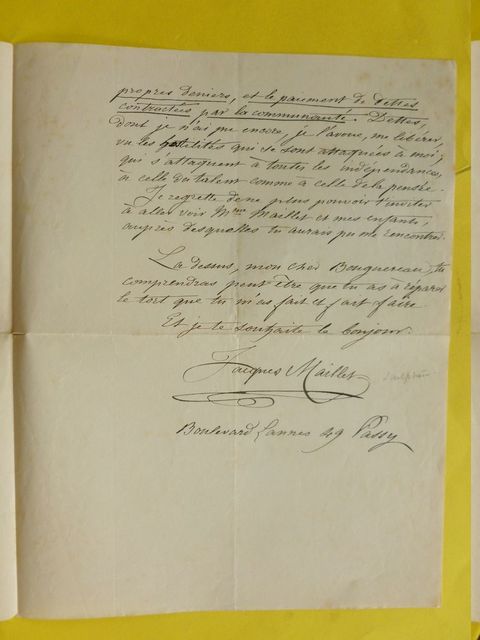 propres deniers, et le paiement de dettes
contractées par la communauté. Dettes,
dont je n'ai pu encore, je l'avoue, me libérer,
vu les hostilités qui se sont attaquées à moi,
qui s'attaquent à toutes les indépendances,
à celle du talent comme à celle de la pensée.
Je regrette de ne plus pouvoir t'inviter
à aller voir Mme Maillet et mes enfants,
auprès desquelles tu aurais pu me rencontrer.
La dessus, mon cher Bouguereau, tu
comprendras peut être que tu as à réparer
le tort que tu m'as fait et fait faire
Et je te souhaite le bonjour.
Jacques Maillet
Boulevard Lannes 49 Passy